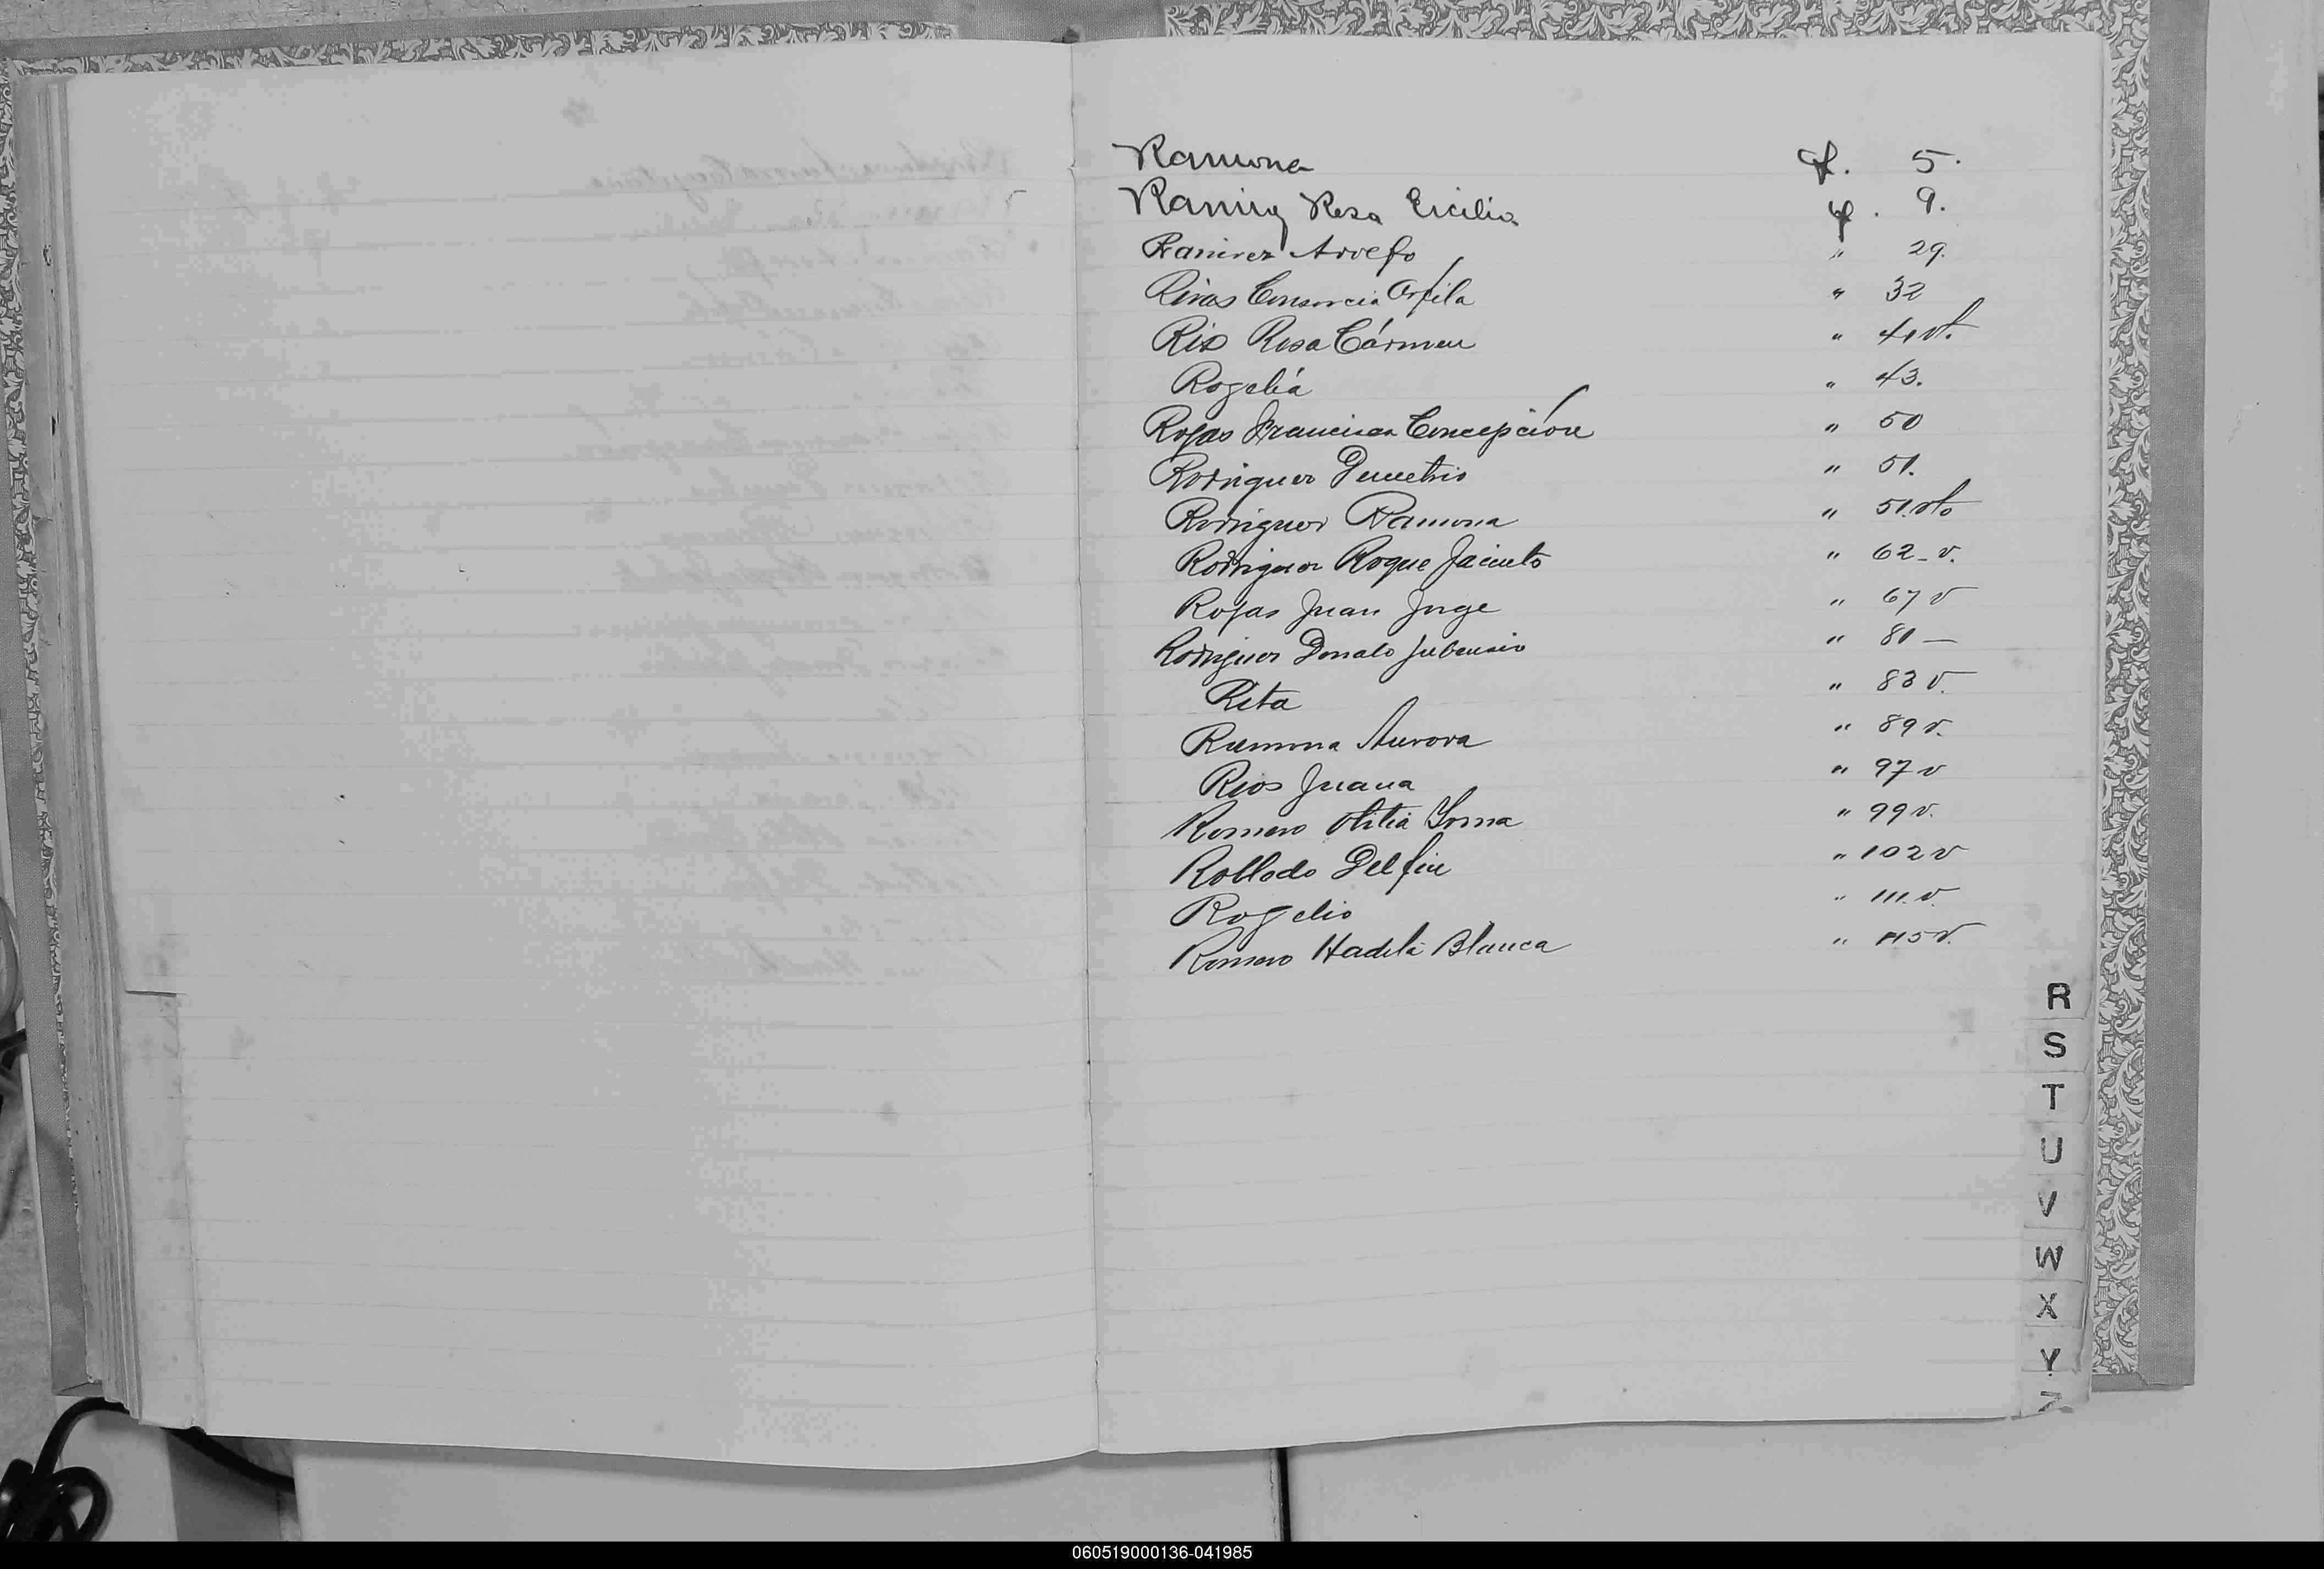 Ramona f. 5.
Ramirez Rosa Ercilia f. 9.
Ramirez Adolfo " 29.
Rivas Consorcia Orfila " 32
Rio Rosa Cármen " 41 vt.
Rogelia " 43.
Rojas Francisca Concepción " 50
Rodriguez Demetrio " 51.
Rodriguez Ramona " 51. vto
Rodriguez Roque Jacinto " 62-v.
Rojas Juan Jorge " 67 v
Rodriguez Donato Jubencio " 81 —
Rita " 83 v.
Ramona Aurora " 89 v.
Rios Juana " 97 v
Romero Otilia Irma " 99 v.
Robledo Delfin " 102 v
Rogelio " 111. v.
Romero Hadela Blanca " 115 v.
R
S
T
U
V
W
X
Y
Z
060519000136-041985